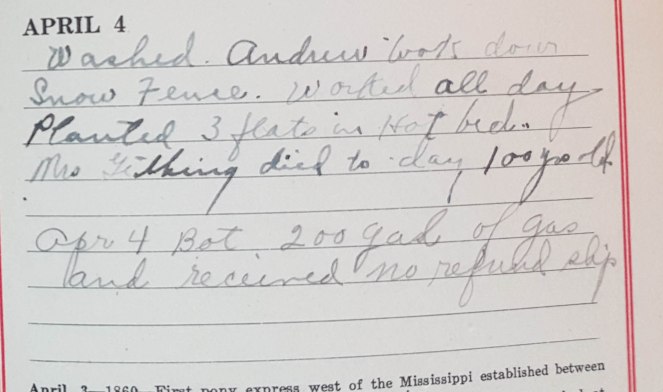 APRIL 4
Washed. Andrew took down
Snow Fence. Worked all day
Planted 3 flats in Hot bed.
Mrs died to-day, 100 yrs old.
Apr 4 Bot 200 gal of gas
and received no refund slip
April 3, 1860, First pony express west of the Mississippi established between